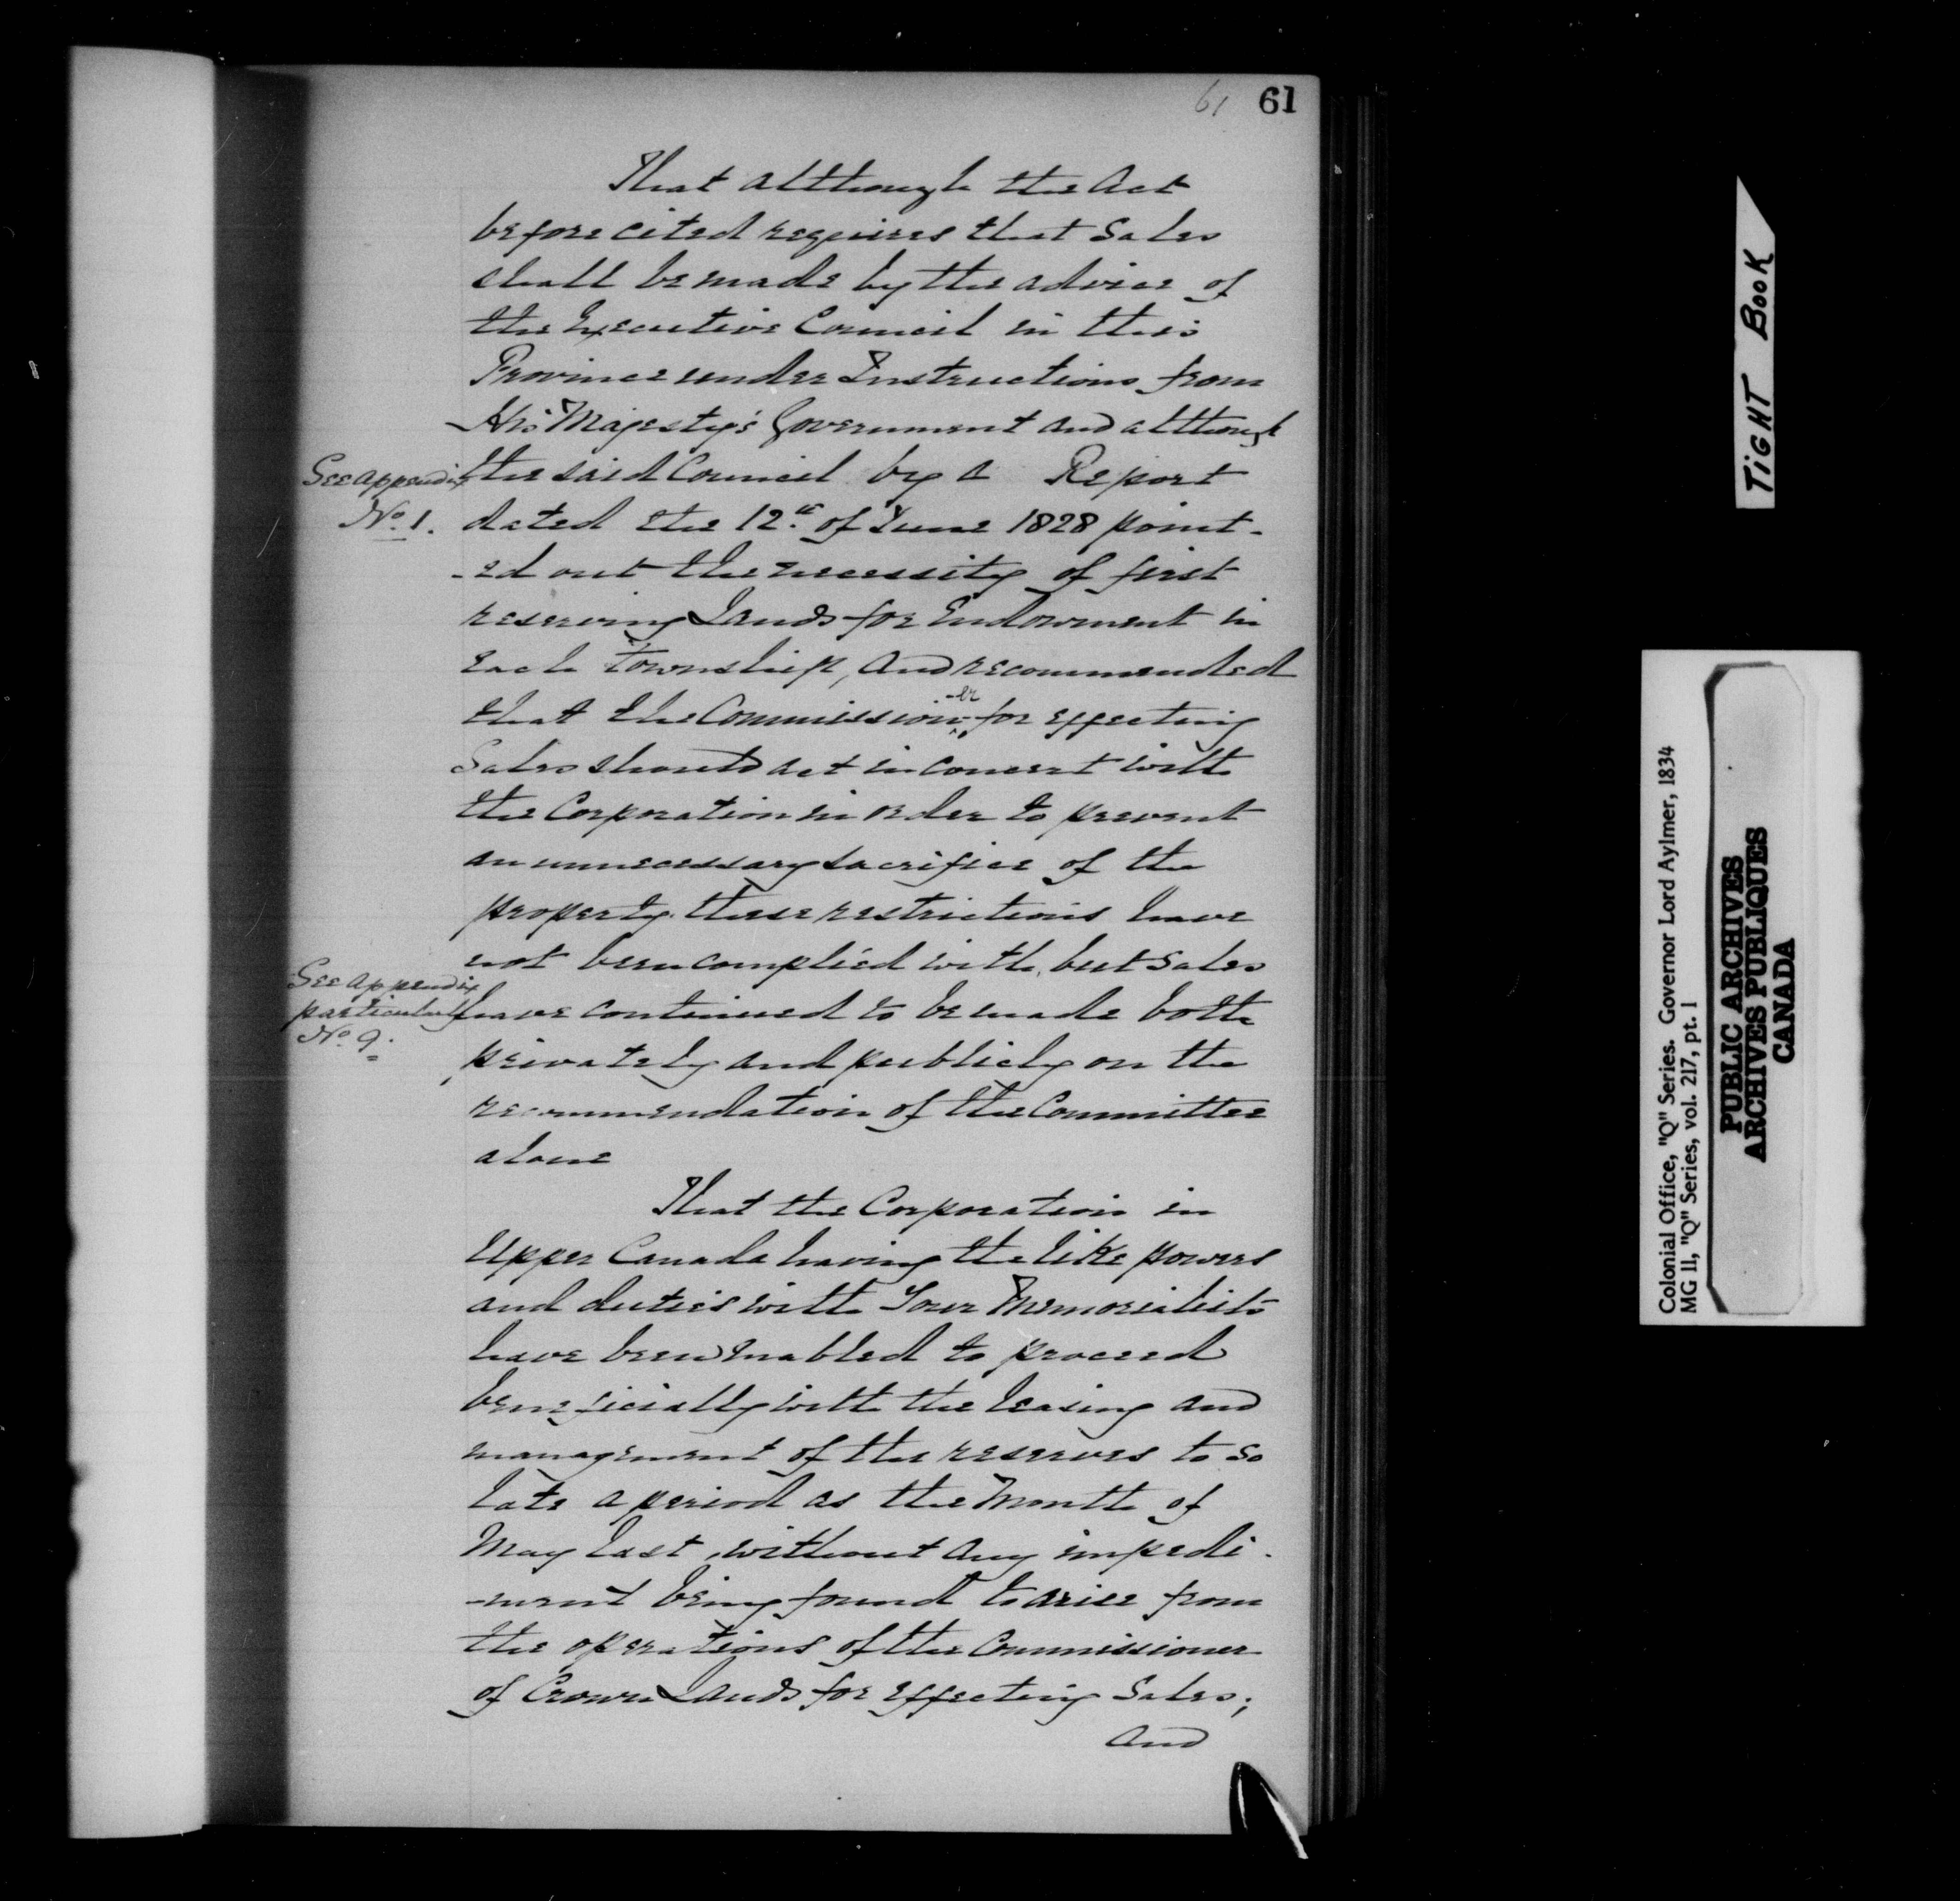 61 61
That although the Act
before cited requires that Sales
shall be made by the advice of
the Executive Council in this
Province under Instructions from
His Majesty's Government and although
See appendix
No. 1.
the said Council by a Report
dated the 12th of June 1828 point-
-ed out the necessity of first
reserving Lands for Endowment in
each Township, and recommended
that the Commission-er for effecting
Sales should act in concert with
the Corporation in order to prevent
an unnecessary sacrifice of the
property. these restrictions have
not been complied with, but Sales
See appendix
particularly
No. 9.
have continued to be made both
privately and publicly on the
recommendation of the Committee
alone
That the Corporation in
Upper Canada having the like powers
and duties with Your Memorialists
have been enabled to proceed
beneficially with the leasing and
management of the reserves to so
late a period as the Month of
May last, without any impedi-
-ment being found to arise from
the operations of the Commissioner
of Crown Lands for effecting Sales;
And
TIGHT BOOK
Colonial Office, "Q" Series. Governor Lord Aylmer, 1834
MG 11, "Q" Series, vol. 217, pt. 1
PUBLIC ARCHIVES
ARCHIVES PUBLIQUES
CANADA